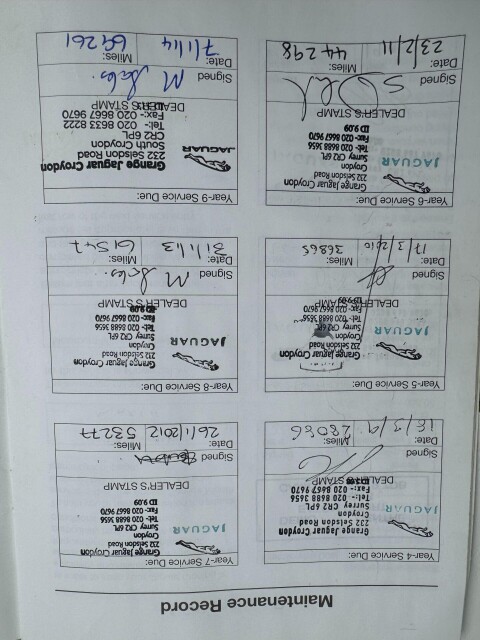 Maintenance Record
Year-4 Service Due:
JAGUAR
Grange Jaguar Croydon
232 Selsdon Road
Croydon
Surrey CR2 6PL
Tel:- 020 8688 3656
Fax:- 020 8667 9670
DEALER'S STAMP
Signed
Date: 18/3/9 Miles: 28086
Year-5 Service Due:
JAGUAR
Grange Jaguar Croydon
232 Selsdon Road
Croydon
Surrey CR2 6PL
Tel:- 020 8688 3656
Fax:- 020 8667 9670
ID 9.09
DEALER'S STAMP
Signed
Date: 17/3/2010 Miles: 36865
Year-6 Service Due:
JAGUAR
Grange Jaguar Croydon
232 Selsdon Road
Croydon
Surrey CR2 6PL
Tel:- 020 8688 3656
Fax:- 020 8667 9670
ID 9.09
DEALER'S STAMP
Signed
Date: 23/2/11 Miles: 44298
Year-7 Service Due:
JAGUAR
Grange Jaguar Croydon
232 Selsdon Road
Croydon
Surrey CR2 6PL
Tel:- 020 8688 3656
Fax:- 020 8667 9670
ID 9.09
DEALER'S STAMP
Signed
Date: 26/1/2012 Miles: 53277
Year-8 Service Due:
JAGUAR
Grange Jaguar Croydon
232 Selsdon Road
Croydon
Surrey CR2 6PL
Tel:- 020 8688 3656
Fax:- 020 8667 9670
ID 9.09
DEALER'S STAMP
Signed
Date: 31/1/13 Miles: 61547
Year-9 Service Due:
JAGUAR
Grange Jaguar Croydon
232 Selsdon Road
South Croydon
CR2 6PL
Tel:- 020 8633 8222
Fax:- 020 8667 9670
DEALER'S STAMP
Signed
Date: 7/1/14 Miles: 69261